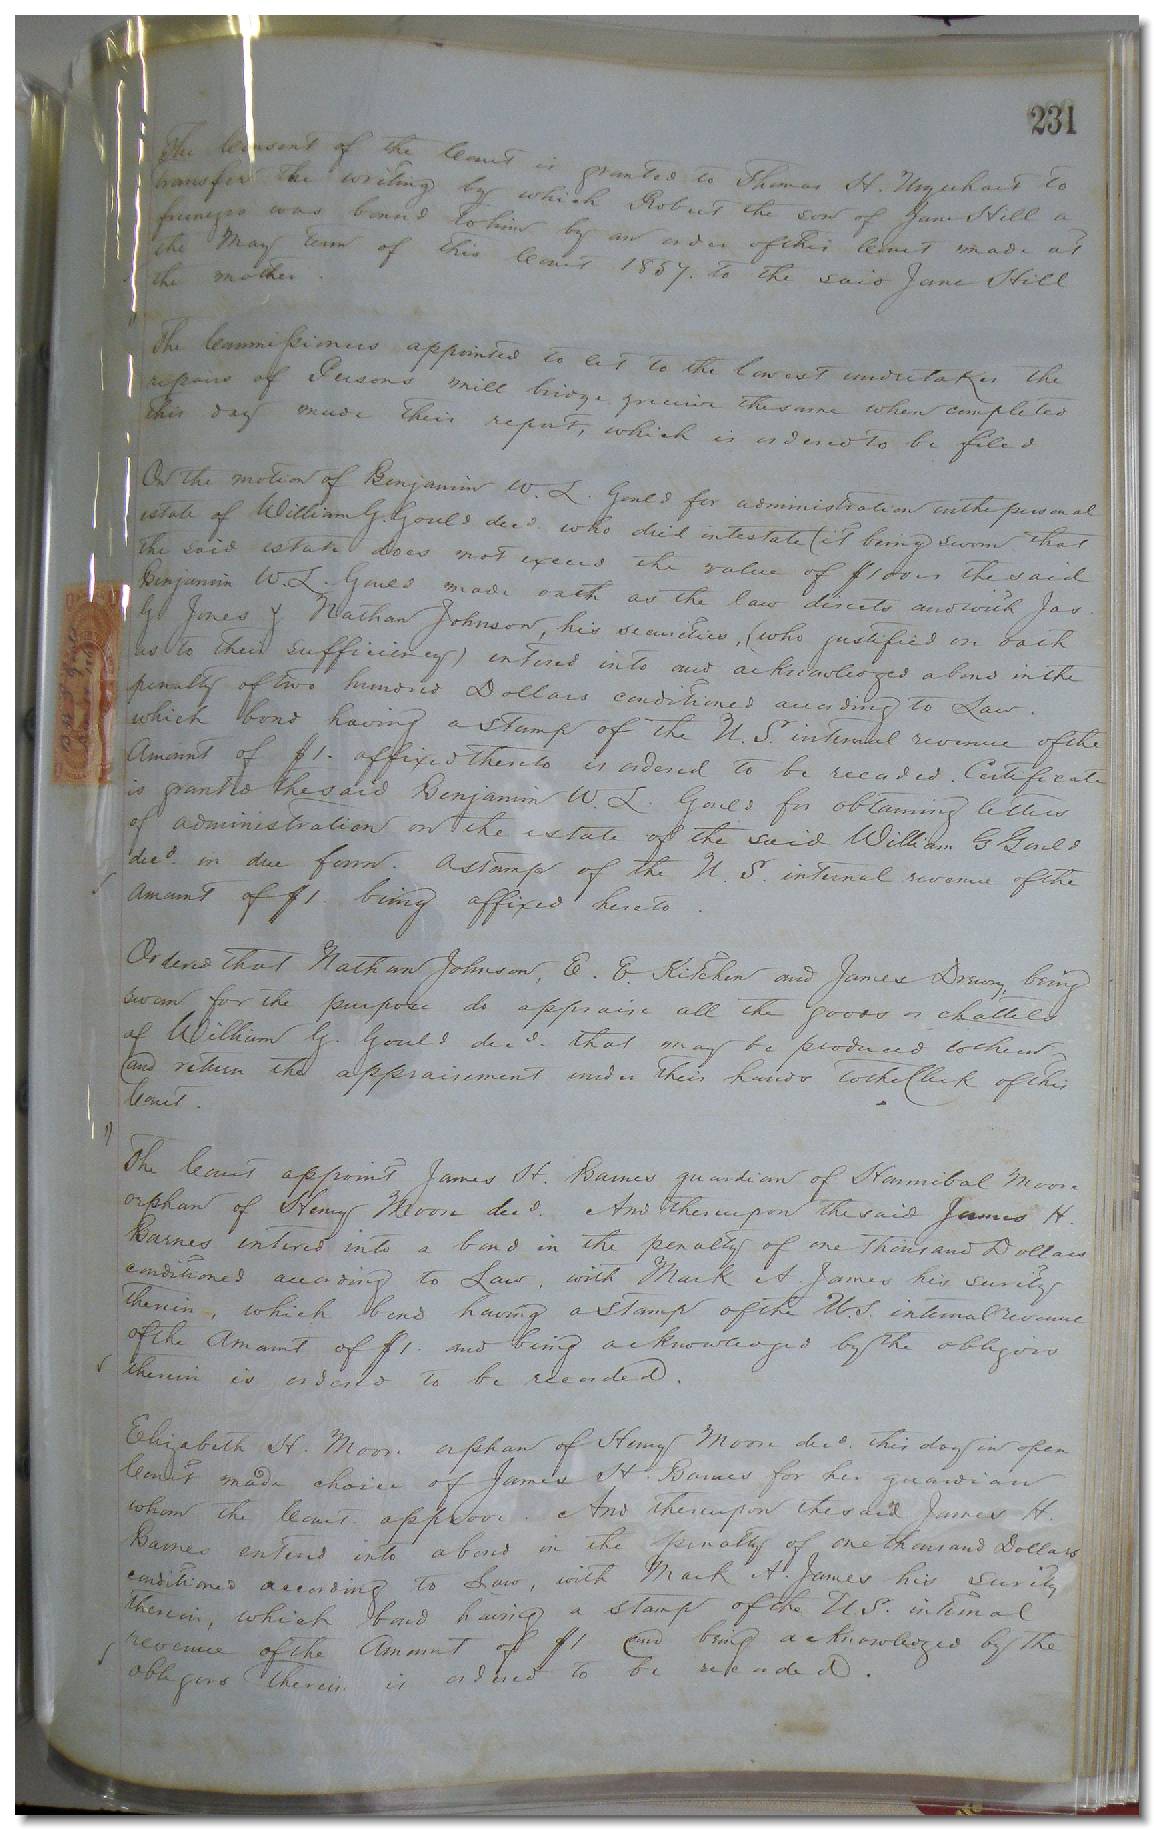 231
The Consent of the Court is granted to Thomas H. Urquhart to
transfer the writing by which Robert the son of Jane Hill a
freenegro was bound to him by an order of this Court made at
the May Term of this Court 1857. to the said Jane Hill
the mother.
The Commissioners appointed to let to the lowest undertaker the
repairs of Persons mill bridge, & receive the same when completed
this day made their report, which is ordered to be filed
On the motion of Benjamin W. L. Gould for administration on the personal
estate of William G. Gould decd. who died intestate (it being sworn that
the said estate does not exceed the value of $100 the said
Benjamin W. L. Gould made oath as the law directs and with Jas.
G Jones & Nathan Johnson, his securities, (who justified on oath
as to their sufficiency) entered into and acknowledged a bond in the
penalty of two hundred Dollars conditioned according to Law.
which bond having a stamp of the U. S. internal revenue of the
Amount of $1. affixed thereto is ordered to be recorded. Certificate
is granted the said Benjamin W. L. Gould for obtaining letters
of administration on the estate of the said William G Gould
decd. in due form. a stamp of the U. S. internal revenue of the
Amount of $1. being affixed hereto.
Ordered that Nathan Johnson, E. E. Kitchen and James Drewry, being
sworn for the purpose do appraise all the goods & chattels
of William G. Gould decd. that may be produced to them
and return the appraisement under their hands to the Clerk of this
Court.
The Court appoint James H. Barnes guardian of Hannibal Moore
orphan of Henry Moore decd. And thereupon the said James H.
Barnes entered into a bond in the penalty of one thousand Dollars
conditioned according to Law, with Mark A. James his surity
therein, which bond having a stamp of the U.S. internal revenue
of the Amount of $1. and being acknowledged by the obligors
therein is ordered to be recorded.
Elizabeth H. Moore orphan of Henry Moore decd. this day in open
Court made choice of James H. Barnes for her guardian
whom the Court approve. And thereupon the said James H.
Barnes entered into a bond in the penalty of one thousand Dollars
conditioned according to Law, with Mark A. James his surity
therein, which bond having a stamp of the U.S. internal
revenue of the Amount of $1 and being acknowledged by the
obligors therein is ordered to be recorded.